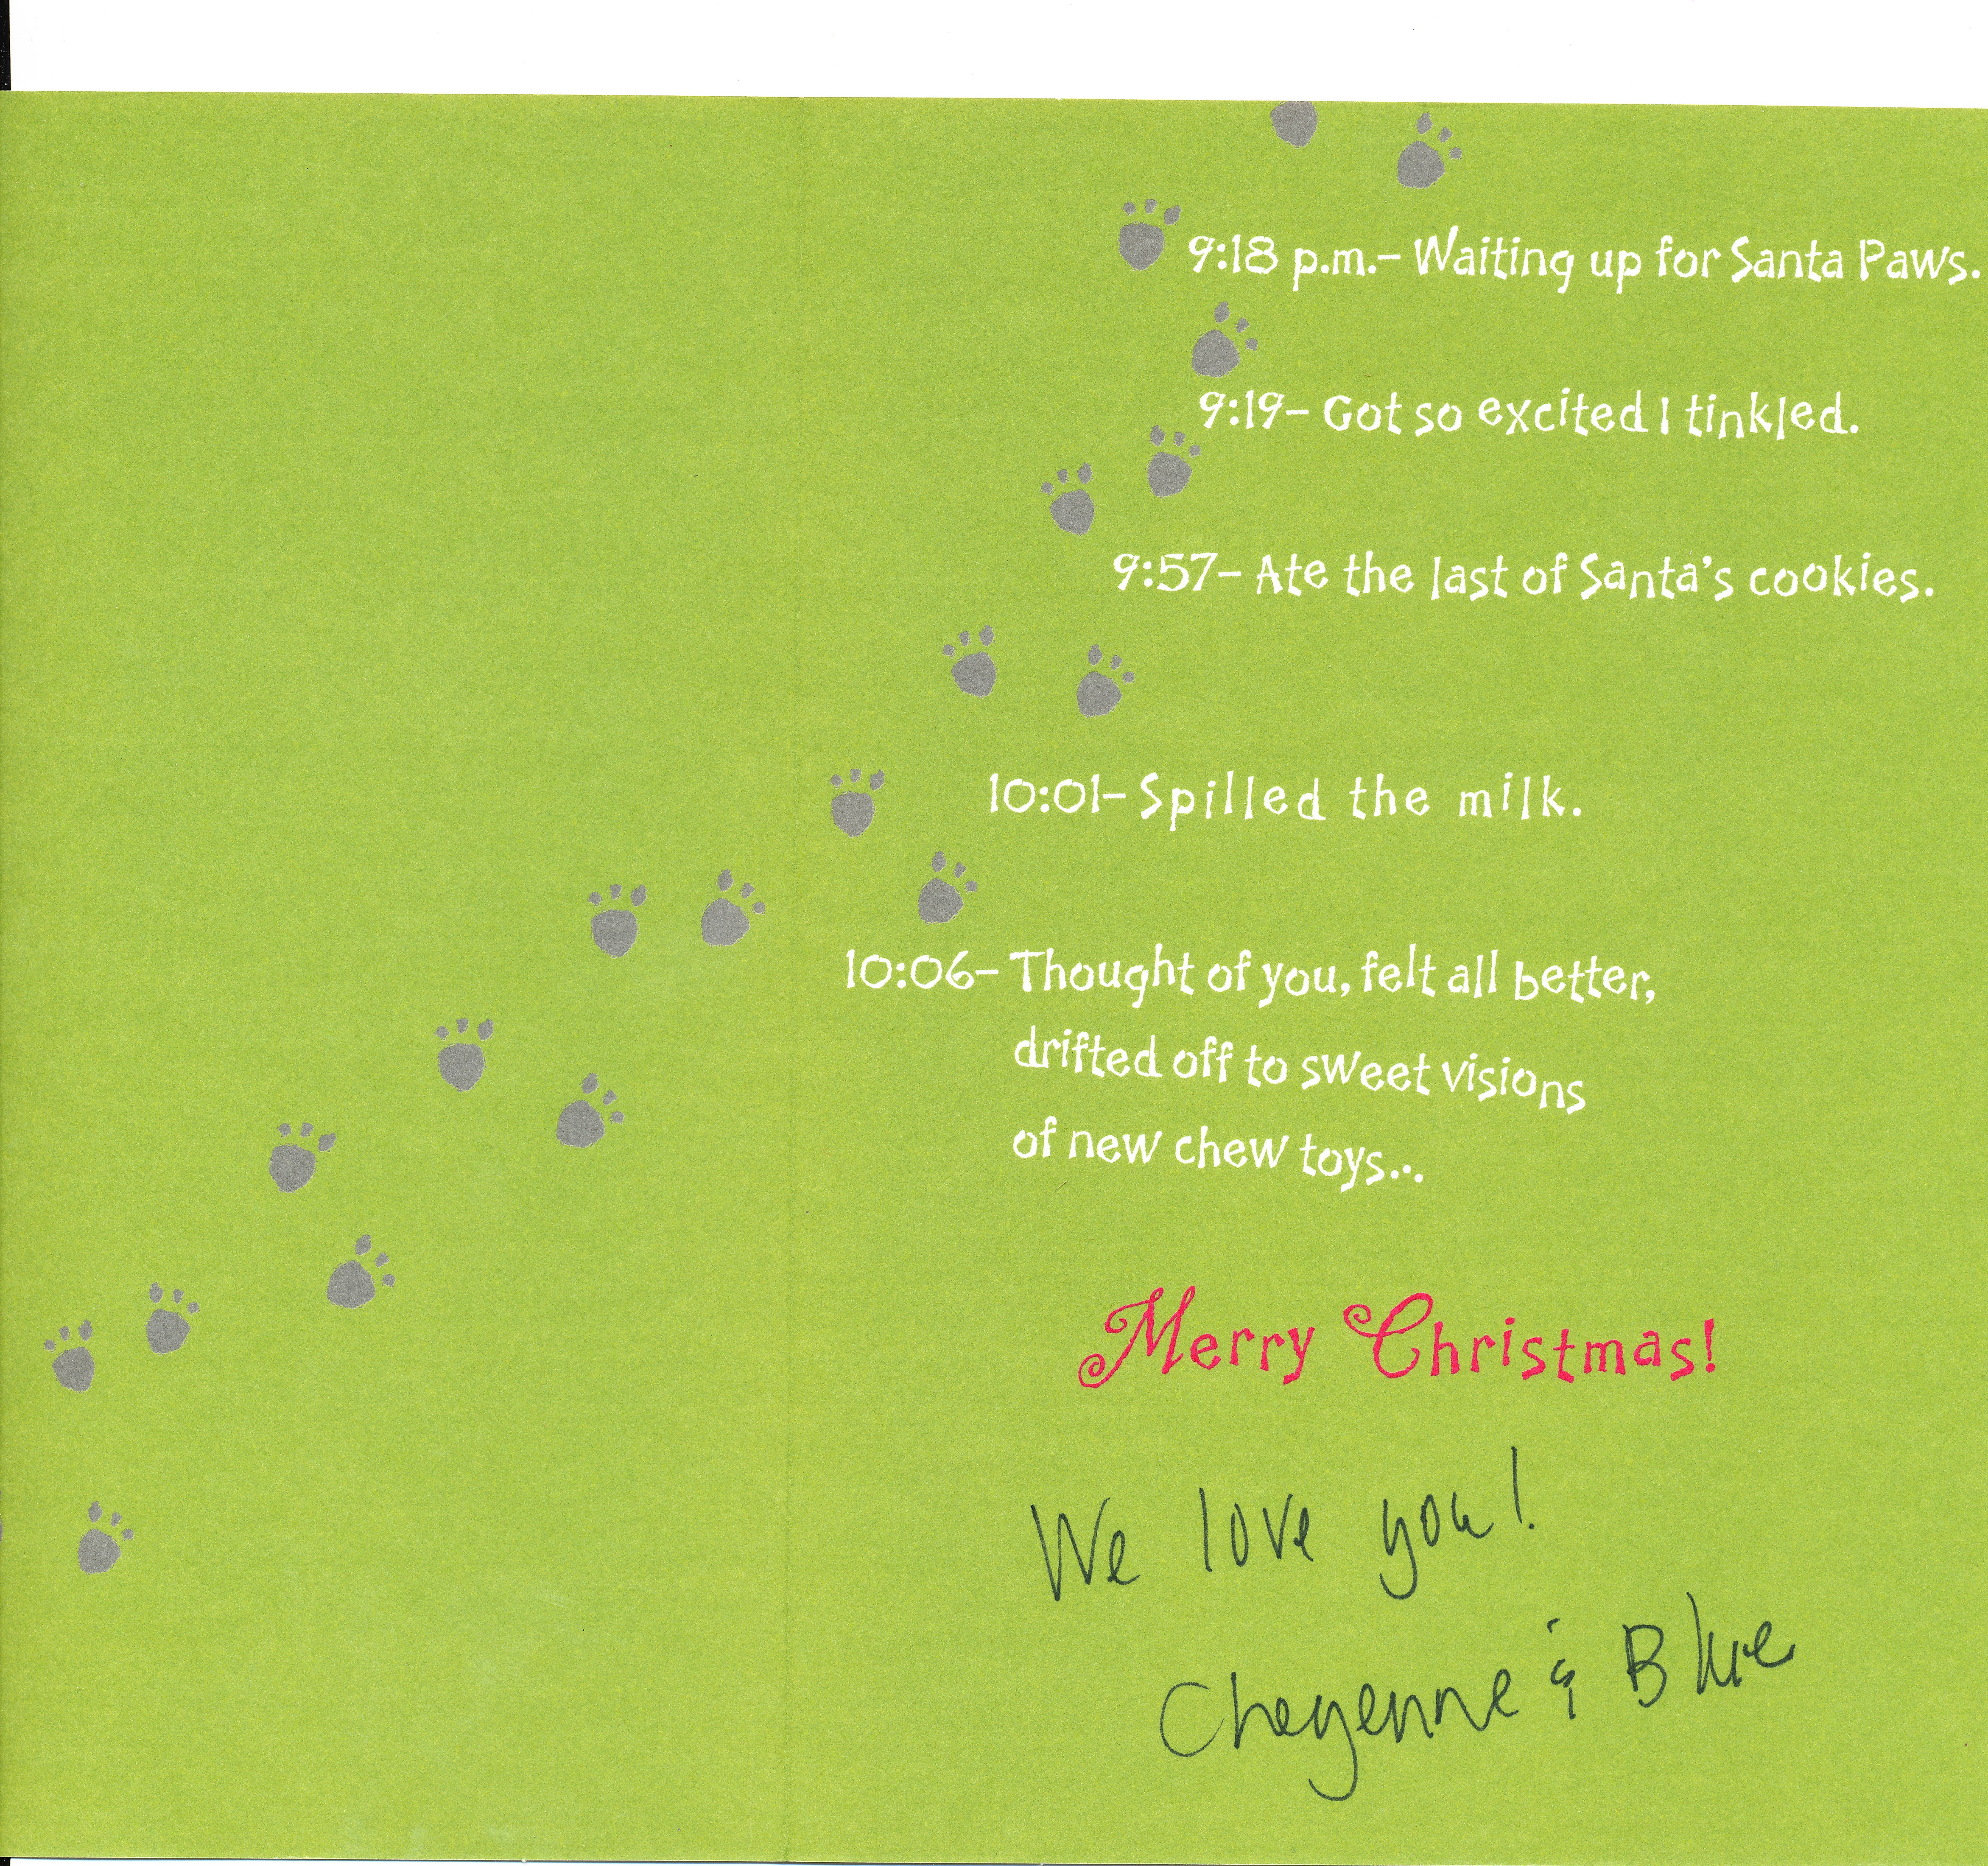 9:18 p.m.– Waiting up for Santa Paws.
9:19– Got so excited I tinkled.
9:57– Ate the last of Santa's cookies.
10:01– Spilled the milk.
10:06– Thought of you, felt all better,
drifted off to sweet visions
of new chew toys...
Merry Christmas!
We love you!
Cheyenne & Blue